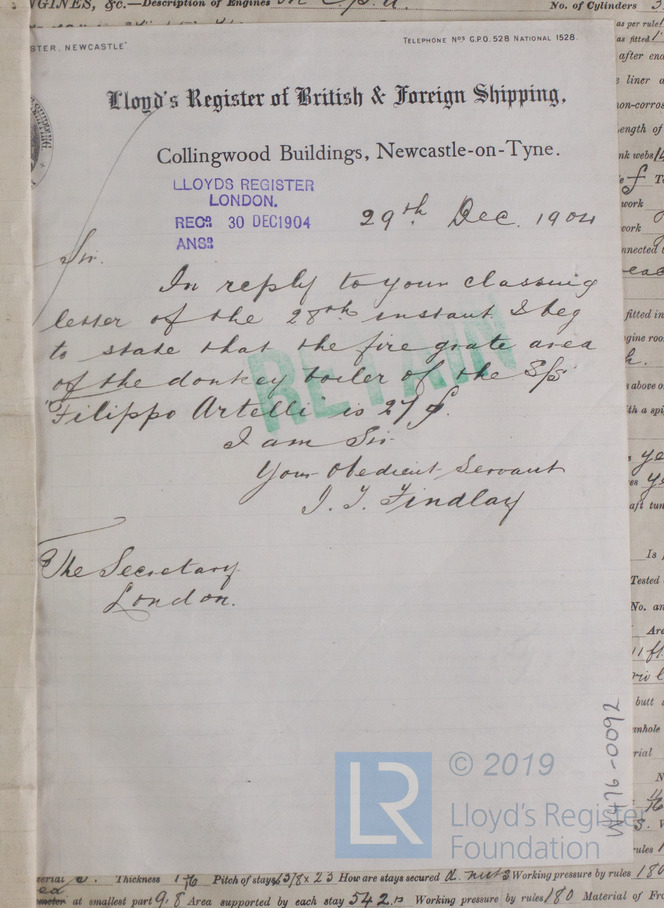 NGINES, &c.—Description of Engines
No. of Cylinders 3
STER, NEWCASTLE"
TELEPHONE Nos G.P.O. 528 NATIONAL 1528.
Lloyd's Register of British & Foreign Shipping,
Collingwood Buildings, Newcastle-on-Tyne.
LLOYDS REGISTER
LONDON.
RECD 30 DEC 1904
ANSD
29th Dec. 1904
Sir.
In reply to your classing
letter of the 28th instant I beg
to state that the fire grate area
of the donkey boiler of the S/S
"Filippo Artelli" is 27
RETAIN
I am Sir
Your Obedient Servant
J. T. Findlay
The Secretary
London.
W476-0092
© 2019
LR
Lloyd's Register
Foundation
as per rule
as fitted
after end
liner
non-corros
length of
nk webs
work
work
nnected
fitted in
gine room
above
th a spi
ye
ye
aft tun
Is
Tested
No. an
Are
11 ft
butt
anhole
rial
rules
erial Thickness 1 Pitch of stays 23 How are stays secured d. nuts Working pressure by rules 180
at smallest part 9.8 Area supported by each stay 342 Working pressure by rules 180 Material of Fro